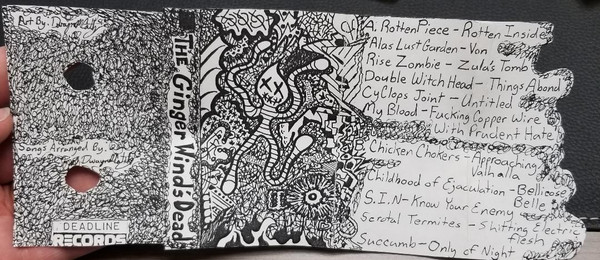 Art By: Dwayne
Songs Arranged By:
Dwayne
DEADLINE
RECORDS
THE Ginger Wind's Dead
A. Rotten Piece - Rotten Inside
Alas Lust Garden - Von
Rise Zombie - Zula's Tomb
Double Witch Head - Things Abond
CyClops Joint - Untitled
My Blood - Fucking Copper Wire
With Prudent Hate
Chicken Chokers - Approaching
Valhalla
Childhood of Ejaculation - Bellicose
Belle
S.I.N - Know Your Enemy
Scrotal Termites - Shifting Electric
flesh
Succumb - Only of Night